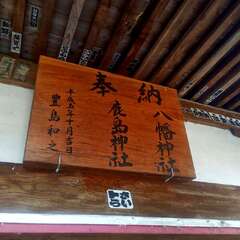 奉納
八幡神社
鹿島神社
平成五年十月吉日
豊島和之